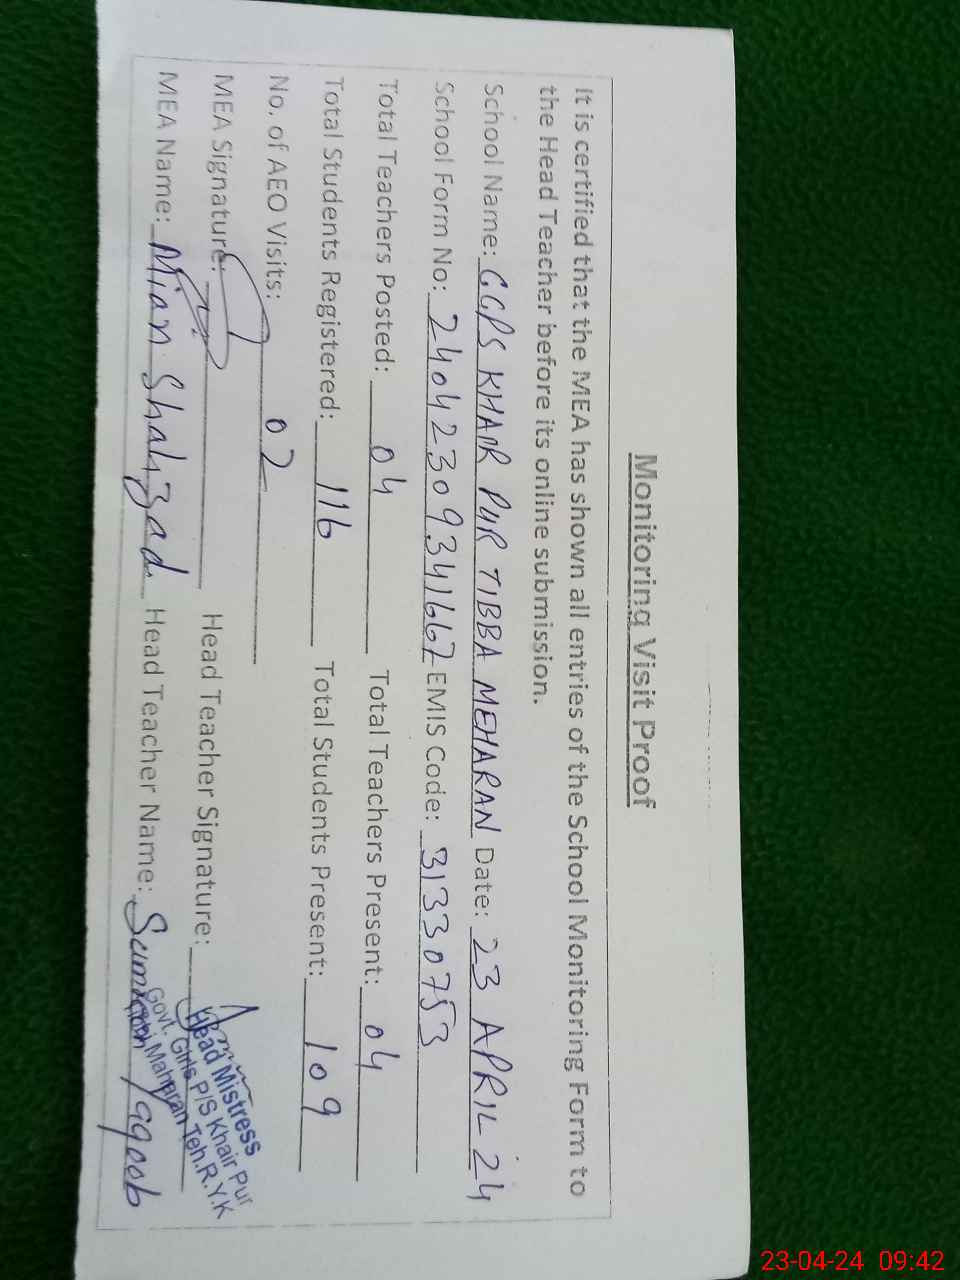 Monitoring Visit Proof
It is certified that the MEA has shown all entries of the School Monitoring Form to
the Head Teacher before its online submission.
School Name: GGPS KHAIR PUR TIBBA MEHARAN Date: 23 APRIL 24
School Form No: 24042309341667 EMIS Code: 31330753
Total Teachers Posted: 04 Total Teachers Present: 04
Total Students Registered: 116 Total Students Present: 109
No. of AEO Visits: 02
MEA Signature: Head Teacher Signature:
MEA Name: Mian Shahzad Head Teacher Name: Yaqoob
Head Mistress
Govt. Girls P/S Khair Pur
Maharan Teh.R.Y.K
23-04-24 09:42